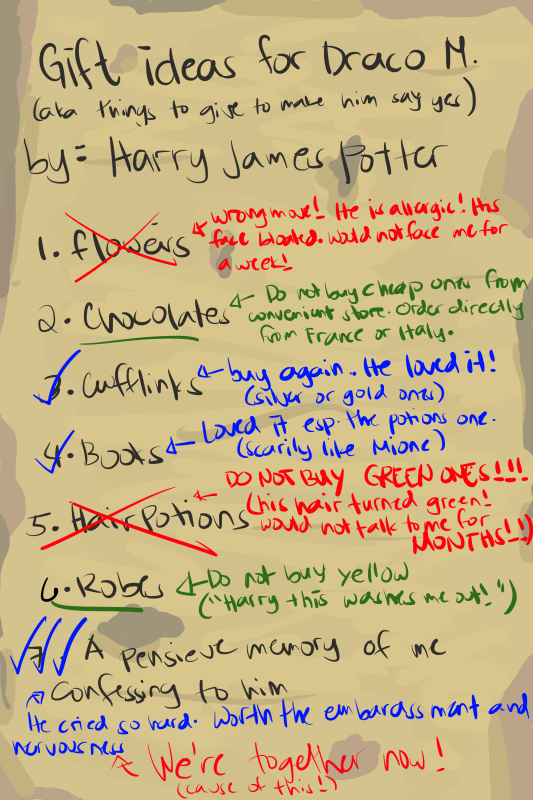 Gift ideas for Draco M.
(aka things to give to make him say yes)
by: Harry James Potter
1. flowers
wrong move! He is allergic! His
face bloated. Would not face me for
a week!
2. Chocolates
Do not buy cheap ones from
convenient store. Order directly
from France or Italy.
3. Cufflinks
buy again. He loved it!
(silver or gold ones)
4. Books
Loved it esp. the potions one.
(scarily like Mione)
5. Hair Potions
DO NOT BUY GREEN ONES!!!
(his hair turned green!
would not talk to me for
MONTHS!!)
6. Robes
Do not buy yellow
("Harry this washes me out!")
7. A pensieve memory of me
confessing to him
He cried so hard. Worth the embarassment and
nervousness
We're together now!
(cause of this!)